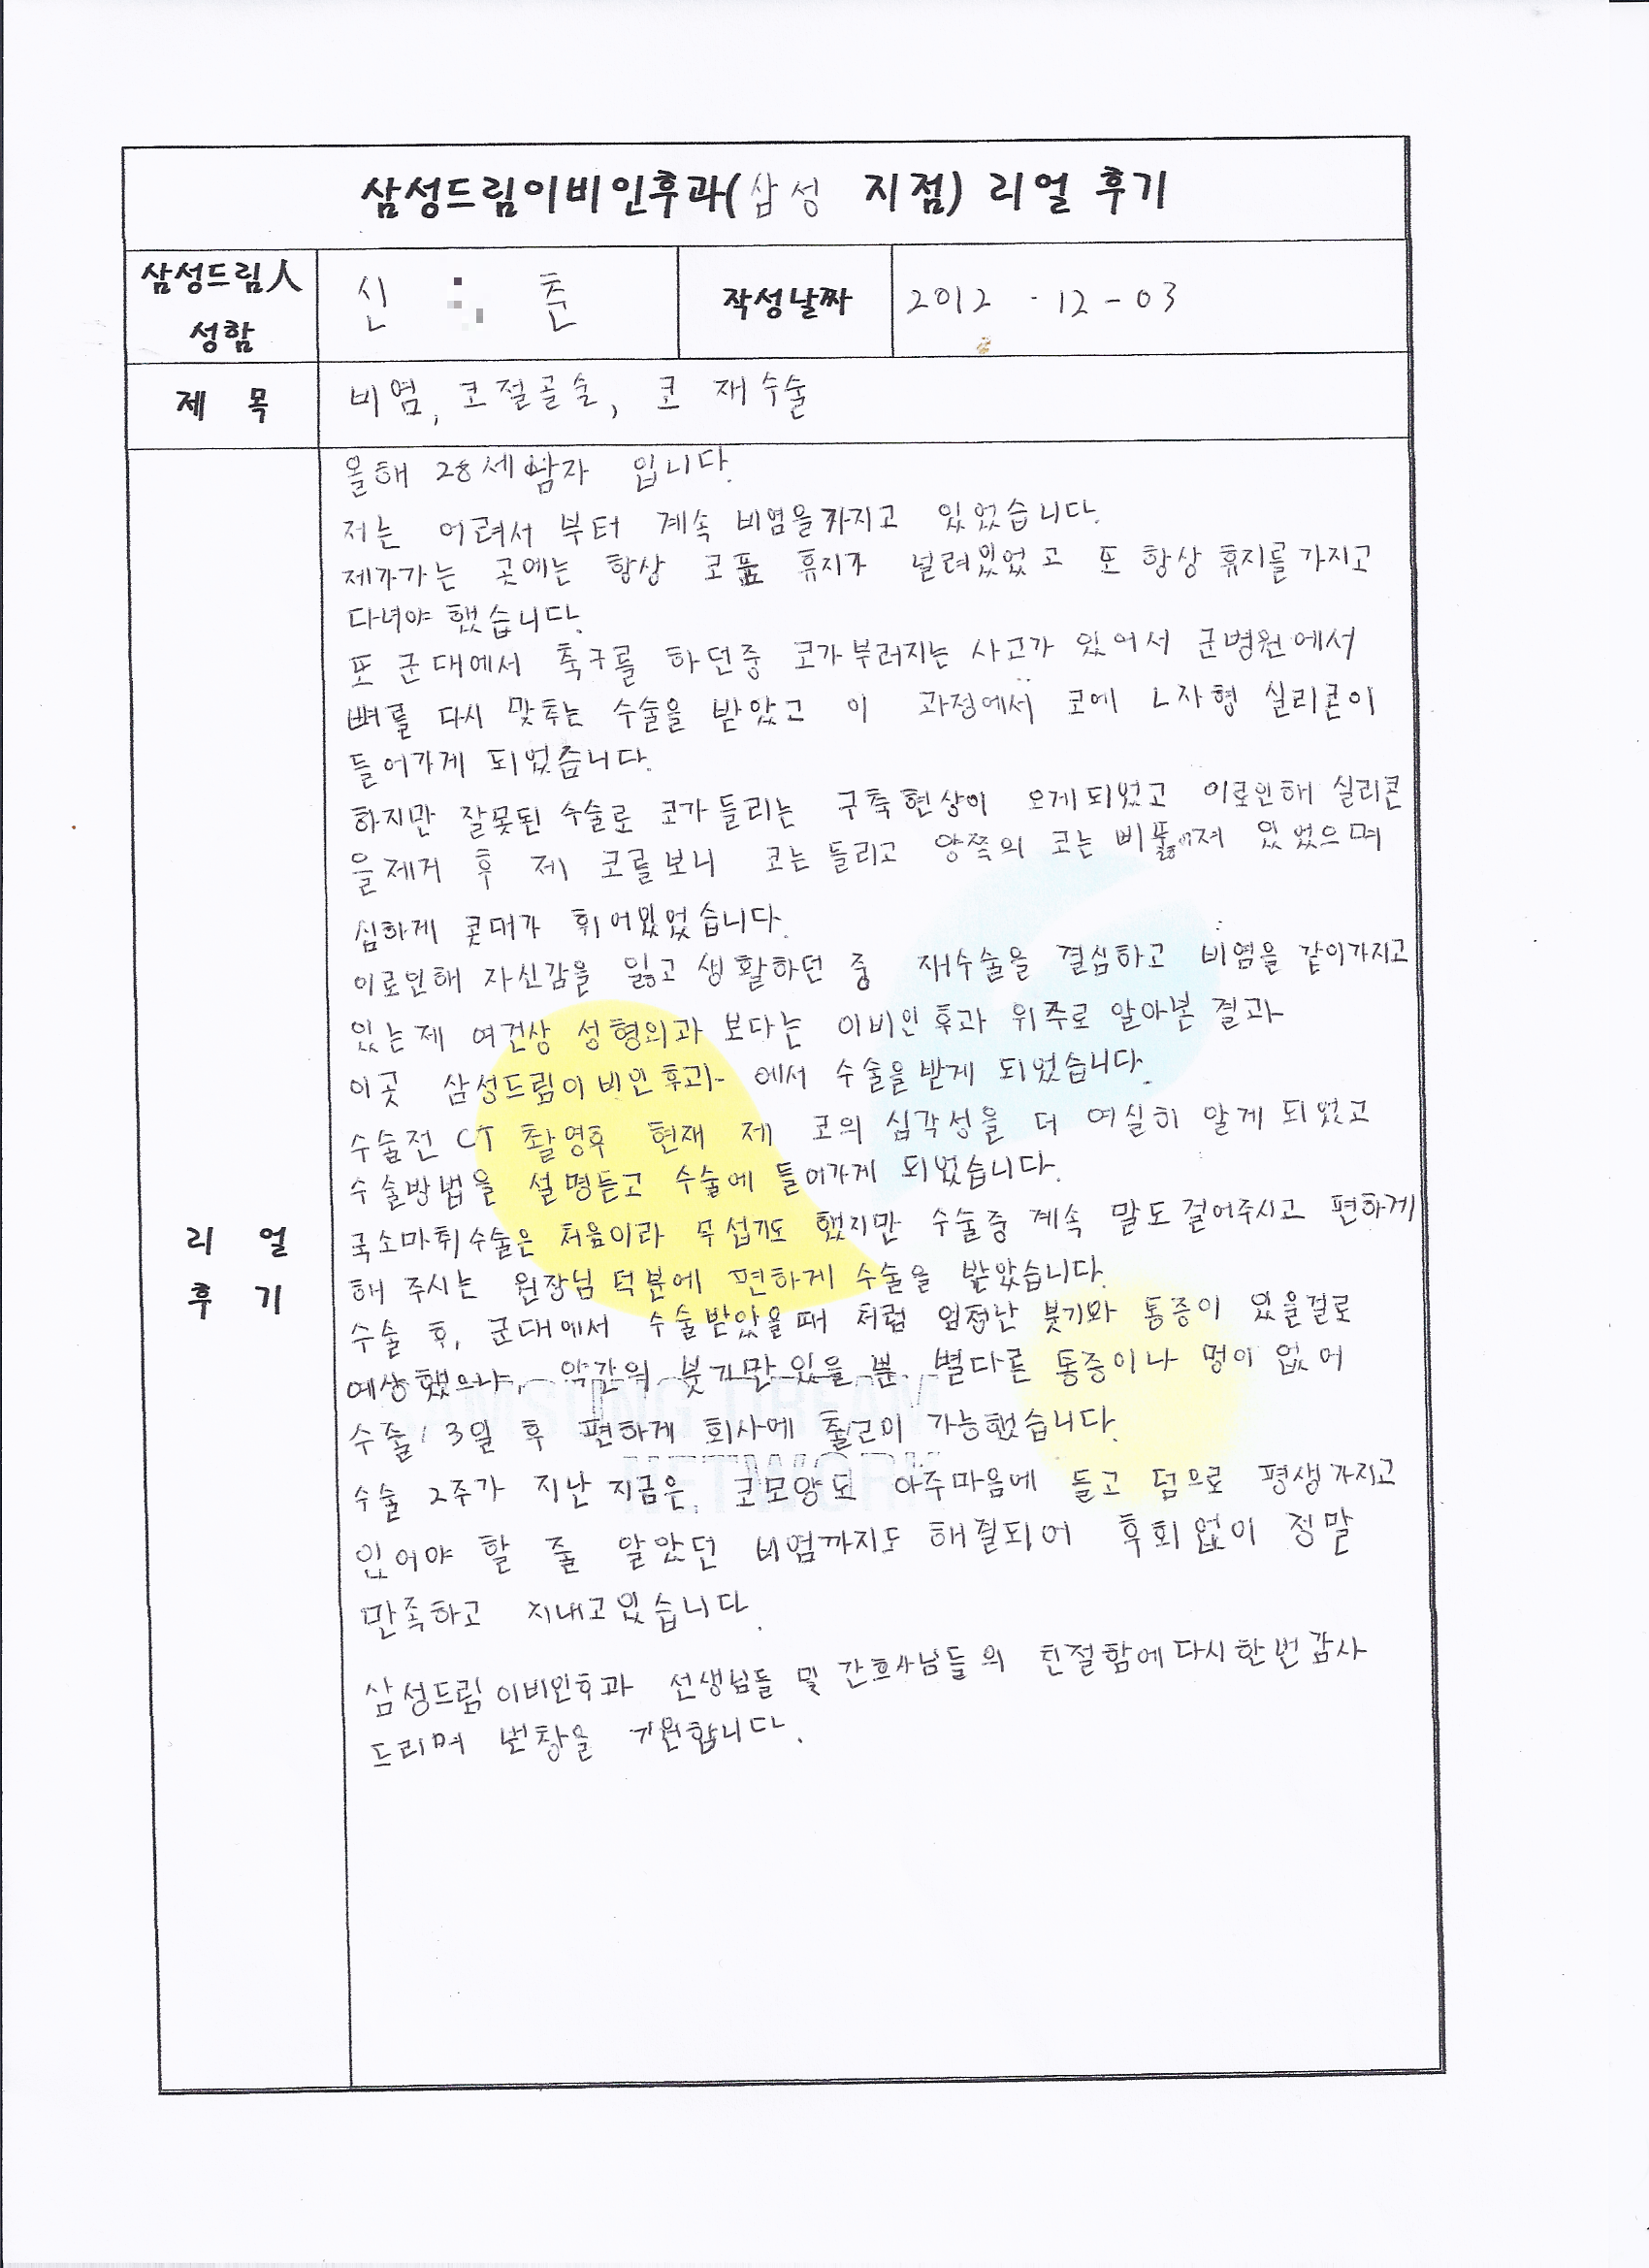 삼성드림이비인후과(삼성 지점) 리얼 후기
삼성드림人 성함
신 춘
작성날짜
2012 - 12 - 03
제 목
비염, 코절골술, 코 재수술
리 얼 후 기
올해 28세 남자 입니다.
저는 어려서 부터 계속 비염을 가지고 있었습니다.
제가가는 곳에는 항상 코푼 휴지가 널려있었고 또 항상 휴지를 가지고
다녀야 했습니다.
또 군대에서 축구를 하던중 코가부러지는 사고가 있어서 군병원에서
뼈를 다시 맞추는 수술을 받았고 이 과정에서 코에 L자형 실리콘이
들어가게 되었습니다.
하지만 잘못된 수술로 코가 들리는 구축현상이 오게되었고 이로인해 실리콘
을제거 후 제 코를보니 코는 들리고 양쪽의 코는 비뚤어져 있었으며
심하게 콧대가 휘어있었습니다.
이로인해 자신감을 잃고 생활하던 중 재수술을 결심하고 비염을 같이가지고
있는제 여건상 성형외과 보다는 이비인후과 위주로 알아본 결과
이곳 삼성드림이비인후과 에서 수술을받게 되었습니다.
수술전 CT 촬영후 현재 제 코의 심각성을 더 여실히 알게 되었고
수술방법을 설명듣고 수술에 들어가게 되었습니다.
국소마취수술은 처음이라 무섭기도 했지만 수술중 계속 말도걸어주시고 편하게
해 주시는 원장님 덕분에 편하게 수술을 받았습니다.
수술 후, 군대에서 수술받았을때 처럼 엄청난 붓기와 통증이 있을걸로
예상했으나, 약간의 붓기만 있을 뿐 별다른 통증이나 멍이 없어
수술 3일 후 편하게 회사에 출근이 가능했습니다.
수술 2주가 지난 지금은, 코모양도 아주마음에 들고 덤으로 평생가지고
있어야 할 줄 알았던 비염까지도 해결되어 후회없이 정말
만족하고 지내고있습니다.
삼성드림이비인후과 선생님들 및 간호사님들의 친절함에 다시한번 감사
드리며 번창을 기원합니다.
SAMSUNG DREAM
NETWORK